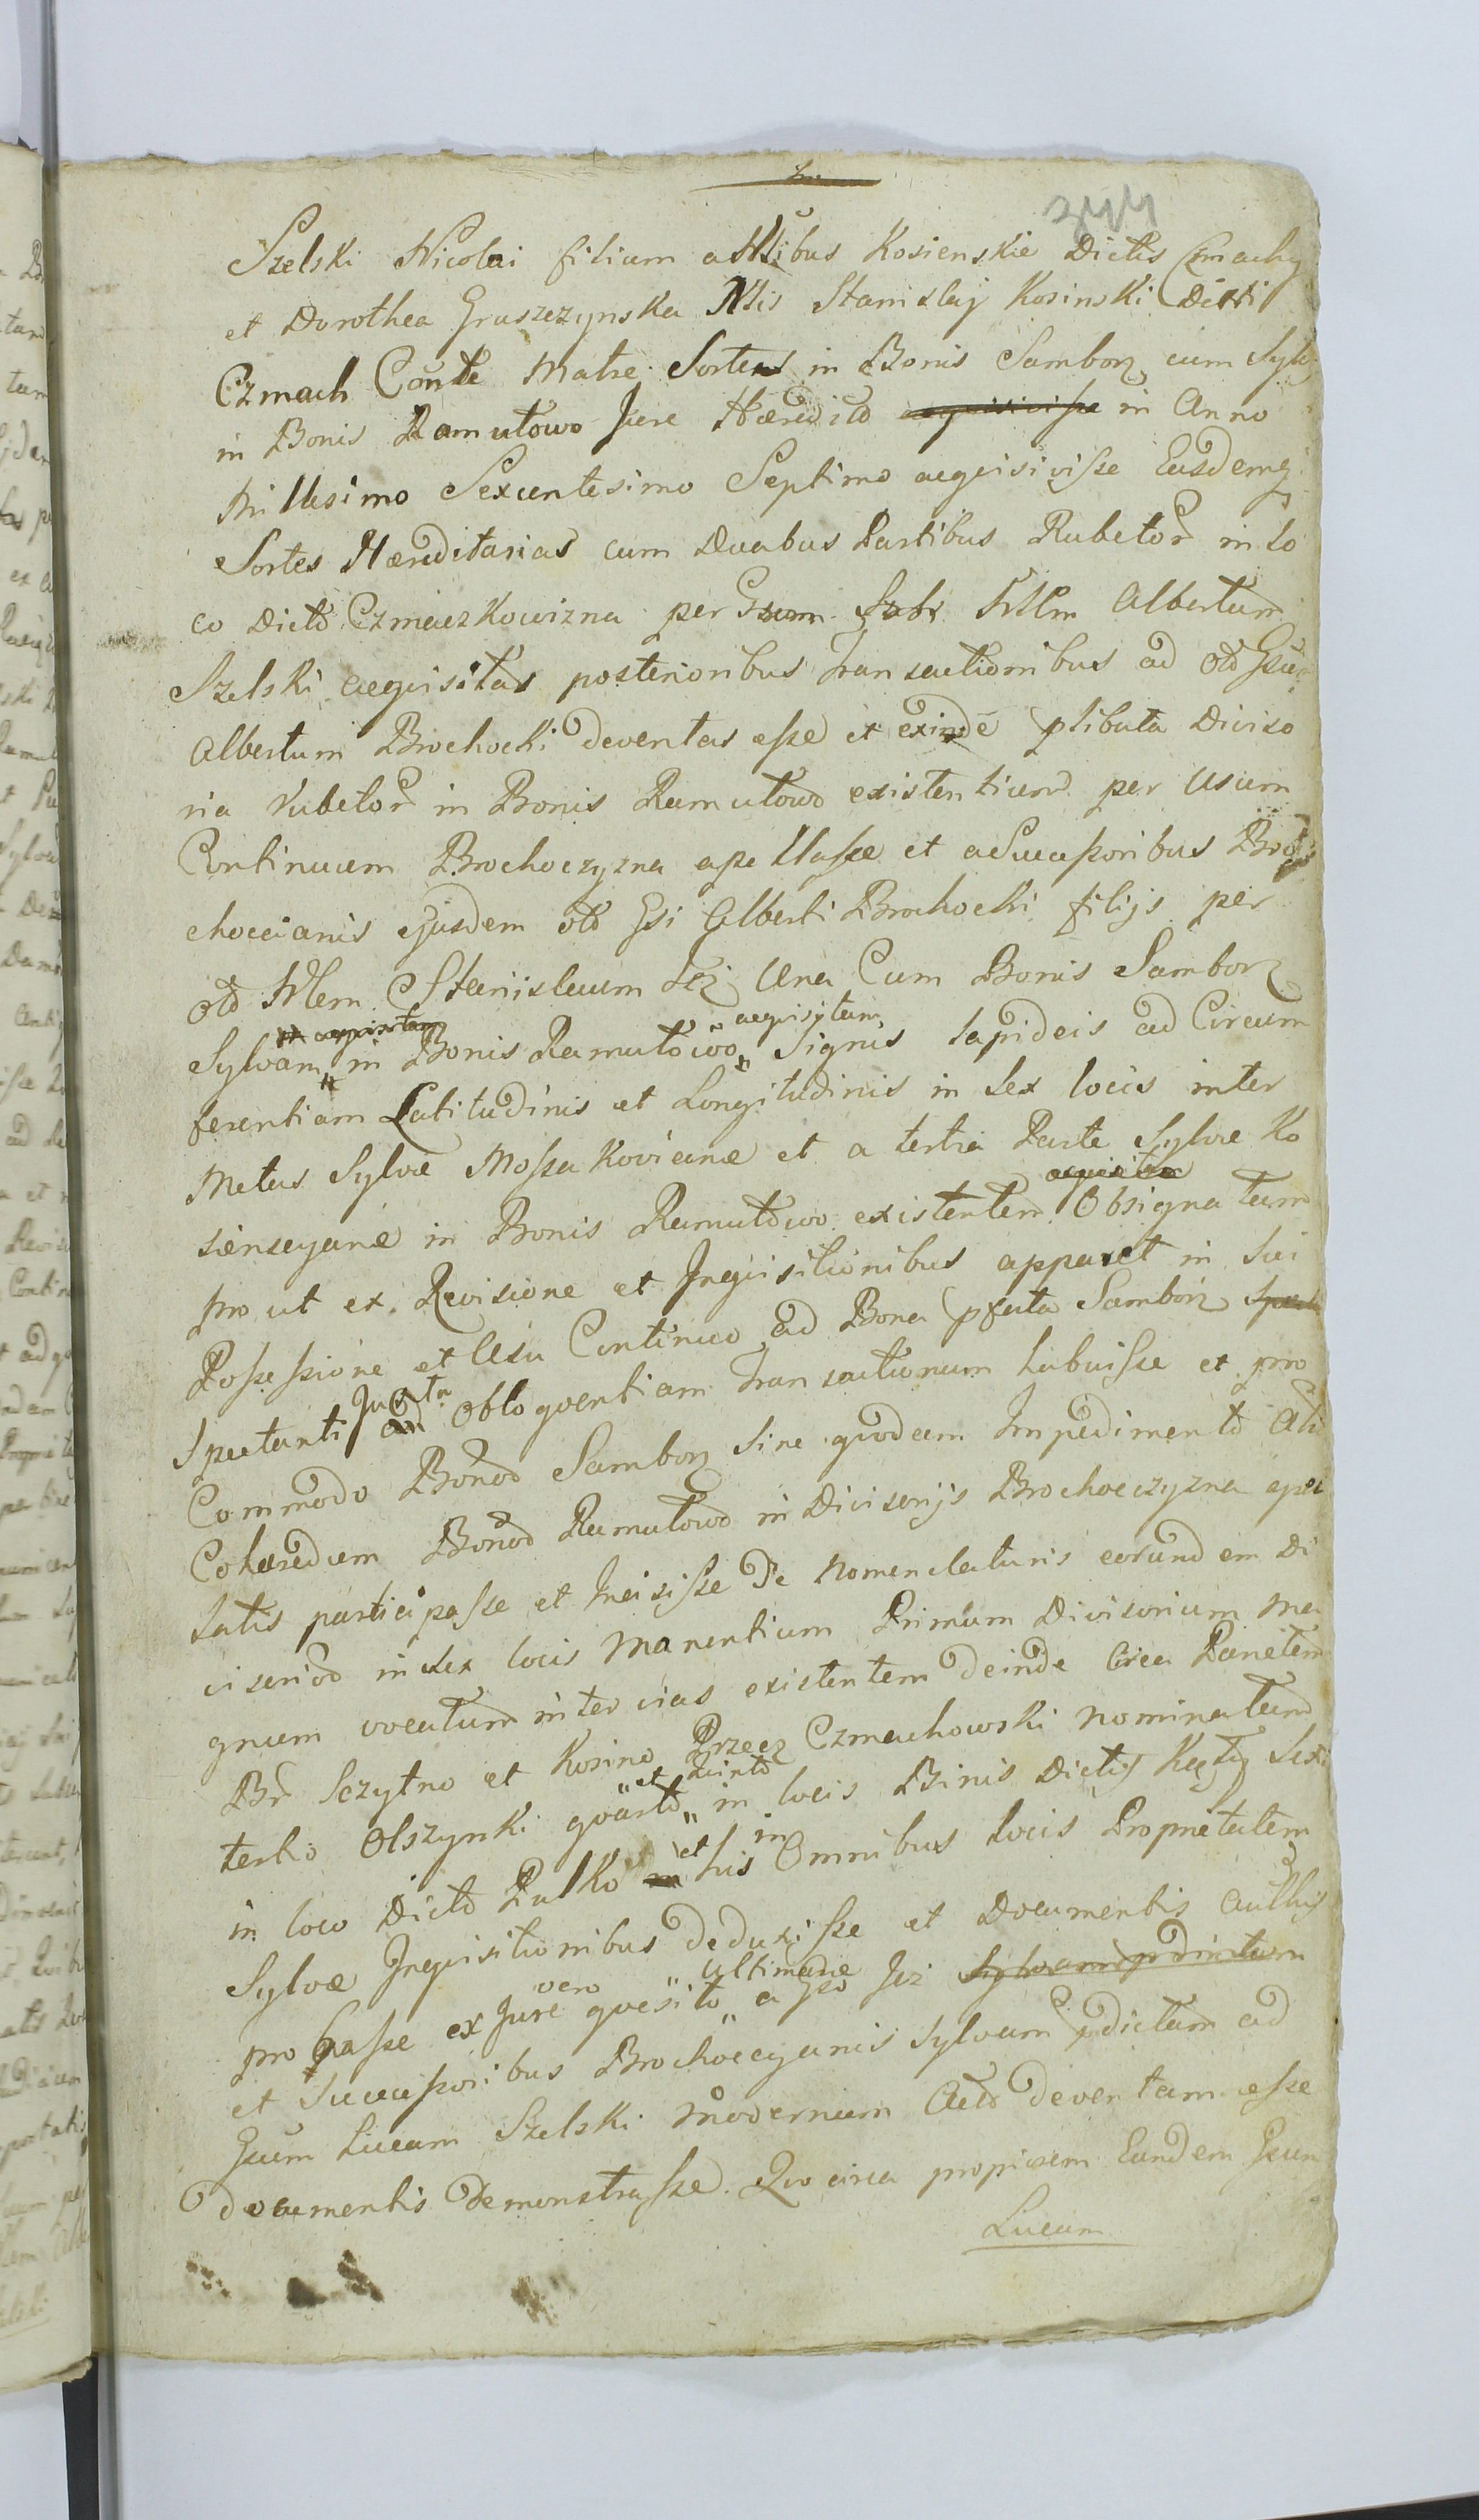 344
Szelski Nicolai filium a Nlibus Kosienskie Dictis Czmachy
et Dorothea Gruszczynska Nlis Stanislaj Kosinski Dicti
Czmach Conte Matre Sortes in Bonis Samborz cum Sylv
in Bonis Ramutowo Jure Hæredito aequisivisse in Anno
Millesimo Sexcentesimo Septimo aequisivisse Easdemq
Sortes Hæreditarias cum Duabus Partibus Rubetor in Lo
co Dicto Czmaczkowizna per Gsum Mlm Albertum
Szelski aequisitas posterioribus transactionibus ad olo Gsu
Albertum Brochocki deventas esse et exinde plibata Diviso
ria Rubetor in Bonis Ramutowo existentium per Usum
Continuum Brochoczyzna apellasse et a Successoribus Bro
choccianis ejusdem olo Gsi Alberti Brochocki filijs per
olo Mlem Stanislaum Jez Una Cum Bonis Samborz
et aequisitam aequisytam
Sylvam in Bonis Ramutowo Signis Lapideis ad Circum
ferentiam Latitudinis et Longitudinis in Sex locis inter
Metas Sylvæ Mossakovianæ et a tertia Parte Sylvæ Ko
aequisita
sienscyanæ in Bonis Ramutowo existentem Obsignatam
pro ut ex Revisione et Inquisitionibus apparet in sui
Possessione et Usu Continuo ad Bona pfata Samborz
Juxta
Spectanti ad Obloquentiam Transactionum habuisse et pro
Commodo Bonor Samborz Sine quodam Impedimento Ali
Cohæredum Bonor Ramutowo in Divisorijs Brochoczyzna apel
latis participasse et Incisisse De Nomenclaturis eorundem Di
visorior in Sex locis Manentium Primum Divisorium Ma
gnum vocatum inter vias existentem deinde Circa Parietem
Br Sczytno et Kosino Przecz Czmachowski nominatum
et quinto
tertio Olszynki quarto in locis Binis Dictis Kąty Sexto
et in
in loco Dicto Pulko his Omnibus locis Proprietatem
Sylvæ Inquisitionibus deduxisse et Documentis Authis
vero ultimarie
probasse ex Jure quesito a Gso Jez Sylvam pdictam
et Successoribus Brochoccyanis Sylvam pdictam ad
Gsum Lucam Szelski Modernum Actor deventam esse
documentis Demonstrasse. Quo circa propiorem Eundem Gsum
Lucam